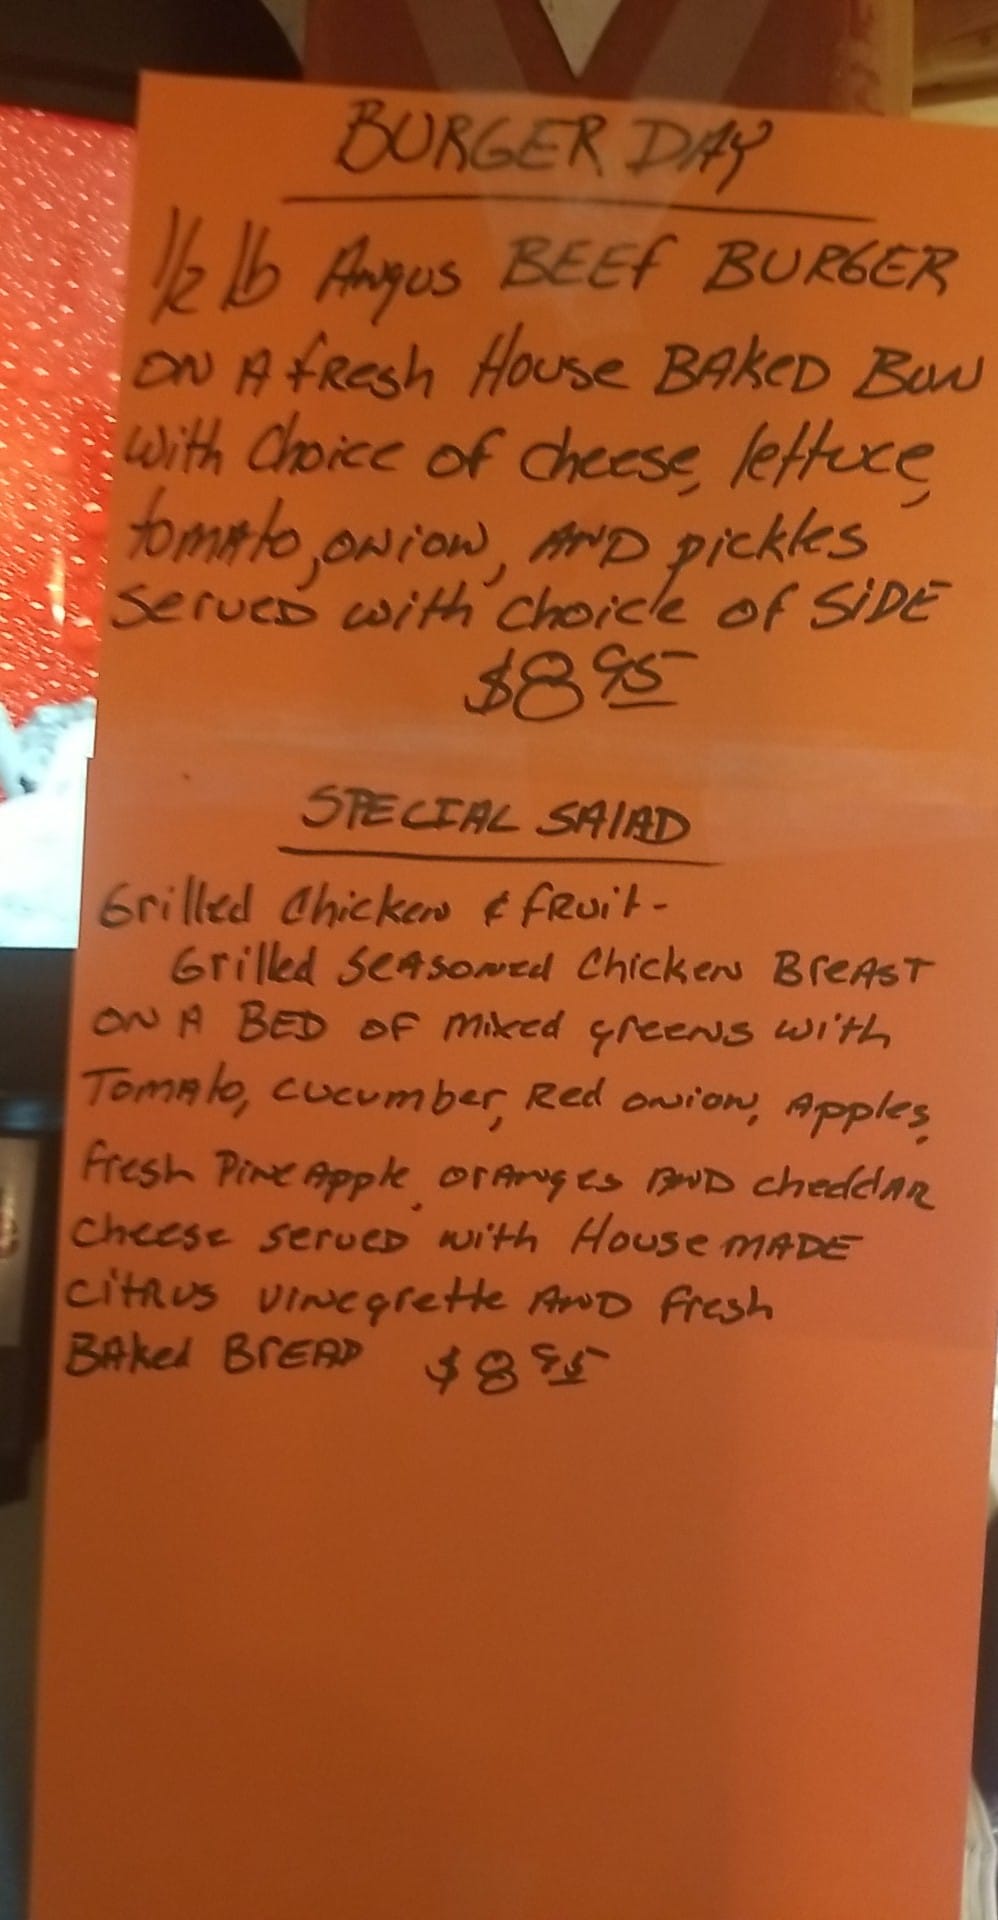 BURGER DAY
1/2 lb Angus BEEf BURGER
ON A fResh House BAKeD BUN
with Choice of cheese, lettuce,
tomAto, oNioN, AND pickles
served with choice of SiDE
$8 95
SPECIAL SAlAD
Grilled Chicken & fRuit-
Grilled SeAsoned Chicken BreAST
ON A BED of mixed greens with
TomAto, cucumber, Red onion, Apples,
fresh PineApple, orAnges AND cheddAR
cheese served with House MADE
CiTRUS vinegrette AND fresh
BAked BreAD $8 95